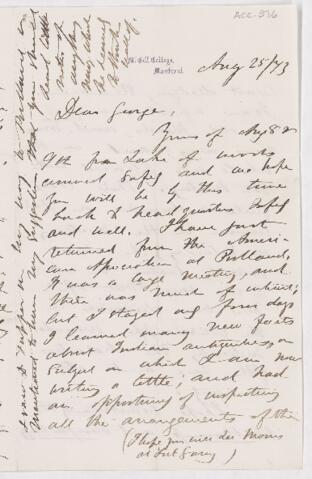 ACC-976
McGill College,
Montreal
Aug 25/73
Dear George,
Yours of Aug 8 &
9th from Lake of Woods
arrived safely and we hope
you will be by this time
back to head quarters safely
and well. I have just
returned from the Ameri-
can Association at Portland.
It was a large meeting, and
there was much of interest;
but I stayed only four days
I learned many new facts
about Indian antiquities, a
subject on which I am now
writing a little; and had
an opportunity of inspecting
all the arrangements of the
(I hope you will see Morris
at Fort Garry)
I saw on his way to
mentioned to him my suggestion that you should
send little
notes of
anything